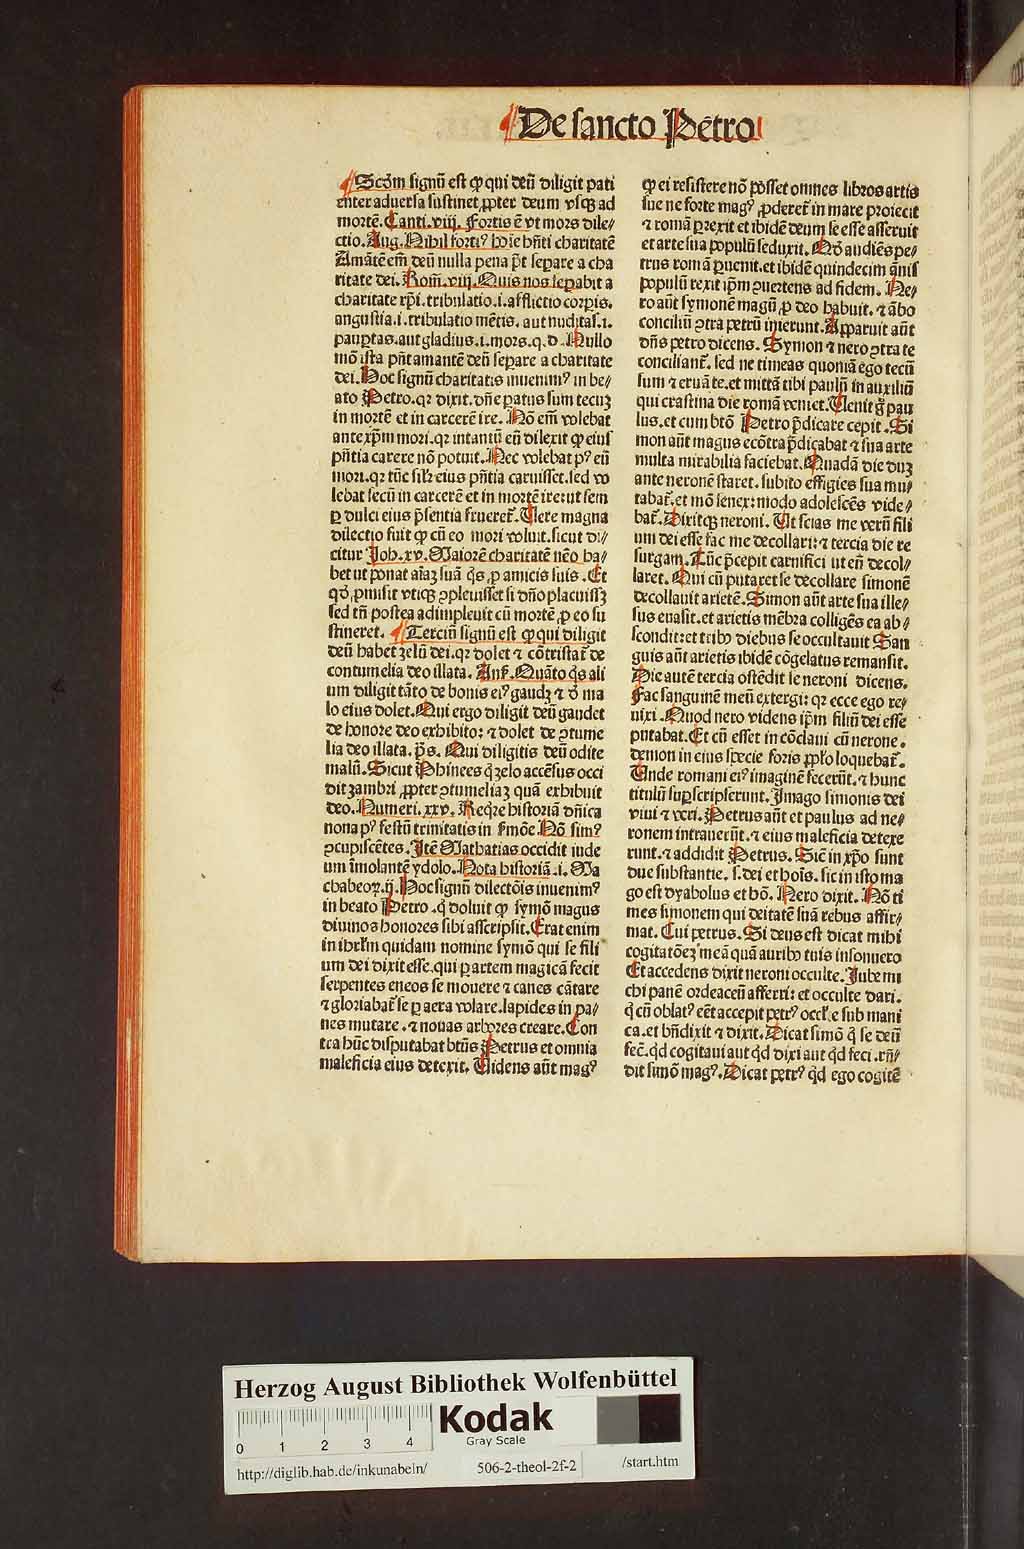 De sancto Petro
Scd̄m signū est ꝙ qui deū diligit pati
enter aduersa sustinet ꝓpter deum vsqꝫ ad
mortē. Canti. viij. Fortis ē vt mors dile⸗
ctio. Aug. Nihil forti⁹ hoīe hn̄ti charitatē
Amātē em̄ deū nulla pena p̄t separe a cha
ritate dei. Rom̄. viij. Quis nos sepabit a
charitate xp̄i. tribulatio .i. afflictio corpis.
angustia .i. tribulatio mētis. aut nuditas .i.
paupertas. aut gladius .i. mors. q.d. Nullo
mō ista pn̄t amantē deū separe a charitate
dei. Hoc signū charitatis inuenim⁹ in be⸗
ato Petro. qꝛ dixit. dn̄e paratus sum tecuꝫ
in mortē et in carcerē ire. Nō em̄ volebat
ante xp̄m mori. qꝛ intantū eū dilexit ꝙ eius
pn̄tia carere nō potuit. Nec volebat p⁹ eū
mori. qꝛ tūc sil'r eius pn̄tia caruisset. sed vo
lebat secū in carcerē et in mortē ire: ut sem
ꝑ dulci eius p̄sentia frueret̄. Uere magna
dilectio fuit ꝙ cū eo mori voluit. sicut di⸗
citur Joh. xv. Maiorē charitatē nēo ha⸗
bet ut ponat aīaꝫ suā q̄s ꝓ amicis suis. Et
qd̓ ꝓmisit vticꝫ ꝯpleuisset si dn̄o placuisſꝫ
sed tn̄ postea adimpleuit cū mortē ꝓ eo su
stineret. Terciū signū est ꝙ qui diligit
deū habet zelū dei. qꝛ dolet ⁊ cōtristat̄ de
contumelia deo illata. Ans. Quāto q̄s ali
um diligit tāto de bonis ei⁹ gaudꝫ ⁊ d̓ ma
lo eius dolet. Qui ergo diligit deū gaudet
de honore deo exhibito: ⁊ dolet de ꝯtume
lia deo illata. p̄s. Qui diligitis deū odite
malū. Sicut Phinees q̇ zelo accēsus occi
dit zambri ꝓpter ꝯtumeliaꝫ quā exhibuit
deo. Numeri. xxv. Reqͥre historiā dn̄ica
nona p⁹ festū trinitatis in s̓mōe. Nō sim⁹
ꝯcupiscētes. Itē Mathatias occidit iude
um īmolantē ydolo. Nota historiā .i. Ma
chabeoꝝ. ij. Hoc signū dilectōis inuenim⁹
in beato Petro. q̇ doluit ꝙ symō magus
diuinos honores sibi asscripsit. Erat enim
in ihrl'm quidam nomine symō qui se fili
um dei dixit esse. qui ꝑ artem magicā fecit
serpentes eneos se mouere ⁊ canes cātare
⁊ gloriabat̄ se ꝑ aera volare. lapides in pa⸗
nes mutare. ⁊ nouas arbores creare. Con
tra hūc disputabat btūs Petrus et omnia
maleficia eius detexit. Uidens aūt mag⁹
ꝙ ei resistere nō posset omnes libros artis
sue ne forte mag⁹ ꝓderet̄ in mare proiecit
⁊ romā ꝑrexit et ibidē deum se esse asseruit
et arte sua populū seduxit. Qd̓ audiēs pe⸗
trus romā ꝑuenit. et ibidē quindecim annis
populū rexit ip̄m ꝯuertens ad fidem. Ne⸗
ro aūt symonē magū ꝓ deo habuit. ⁊ ābo
conciliū ꝯtra petrū inierunt. Apparuit aūt
dn̄s petro dicens. Symon ⁊ nero ꝯtra te
conciliant̄. sed ne timeas quoniā ego tecū
sum ⁊ eruā te. et mittā tibi paulū in auxiliū
qui crastina die romā veniet. Uenit g̊ pau
lus. et cum btō Petro p̄dicare cepit. Si
mon aūt magus ecōtra p̄dicabat ⁊ sua arte
multa mirabilia faciebat. Quadā die duꝫ
ante neronē staret. subito effigies sua mu⸗
tabat̄. et mō senex: modo adolescēs vide⸗
bat̄. Dixitqꝫ neroni. Ut scias me verū fili
um dei esse fac me decollari: ⁊ tercia die re
surgam. Tūc p̄cepit carnifici ut eū decol⸗
laret. Qui cū putaret se decollare simonē
decollauit arietē. Simon aūt arte sua ille⸗
sus euasit. et arietis mēbra colligēs ea ab⸗
scondit: et tribꝰ diebus se occultauit San
guis aūt arietis ibidē cōgelatus remansit.
Die autē tercia ostēdit se neroni dicens.
Fac sanguinē meū extergi: qꝛ ecce ego re⸗
uixi. Quod nero videns ip̄m filiū dei esse
putabat. Et cū esset in cōclaui cū nerone.
demon in eius specie foris ppl̓o loquebat̄.
Unde romani ei⁹ imaginē fecerūt. ⁊ hunc
titulū suꝑscripserunt. Imago simonis dei
viui ⁊ veri. Petrus aūt et paulus ad ne⸗
ronem intrauerūt. ⁊ eius maleficia detexe
runt. ⁊ addidit Petrus. Sic̄ in xp̄o sunt
due substantie. s. dei et hoīs. sic in isto ma
go est dyabolus et hō. Nero dixit. Nō ti
mes simonem qui deitatē suā rebus affir⸗
mat. Cui petrus. Si deus est dicat mihi
cogitatōeꝫ meā quā auribꝰ tuis insonuero
Et accedens dixit neroni occulte. Jube mi
chi panē ordeaceū afferri: et occulte dari.
q̇ cū oblat⁹ eēt accepit petr⁹ occl̓e sub mani
ca. et bn̄dixit ⁊ dixit. Dicat simō q̇ se deū
fec̄. qd̓ cogitaui aut qd̓ dixi aut qd̓ feci. rn̄⸗
dit simō mag⁹. Dicat petr⁹ qd̓ ego cogitē
Herzog August Bibliothek Wolfenbüttel
Kodak
Gray Scale
0 1 2 3 4
http://diglib.hab.de/inkunabeln/ 506-2-theol-2f-2 /start.htm